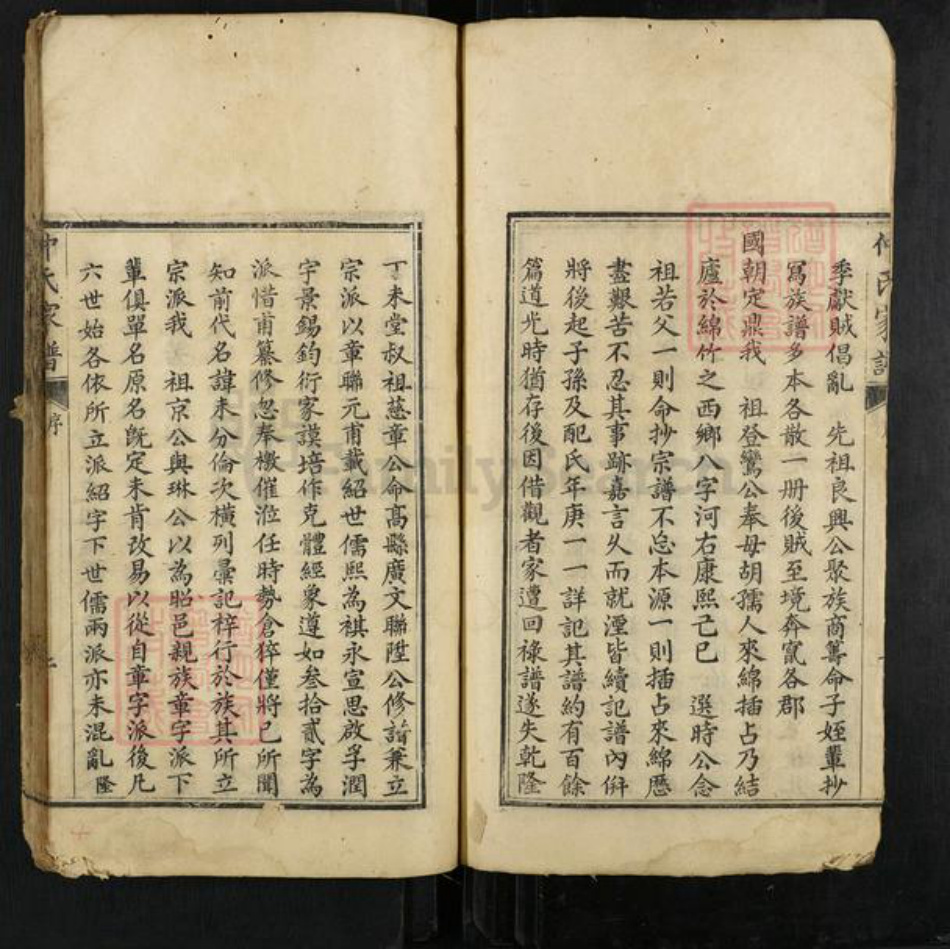 仲氏家譜
季獻賊倡亂 先祖良興公聚族商籌命子姪輩抄
寫族譜多本各散一册後賊至境奔竄各郡
國朝定鼎我 祖登鸞公奉母胡孺人來綿插占乃結
廬於綿竹之西鄉八字河右康熙己巳 選時公念
祖若父一則命抄宗譜不忘本源一則插占來綿歷
盡艱苦不忍其事跡嘉言久而就湮皆續記譜內併
將後起子孫及配氏年庚一一詳記其譜約有百餘
篇道光時猶存後因借觀者家遭回祿譜遂失乾隆
丁未堂叔祖慈章公命高縣廣文聯陞公修譜兼立
宗派以章聯元甫載紹世儒熙為祺永宣思啟孚潤
宇景錫鈞衍家謨培作克體經象遵如叁拾貳字為
派惜甫纂修忽奉檄催涖任時勢倉猝僅將己所聞
知前代名諱未分倫次橫列彙記梓行於族其所立
宗派我 祖京公與琳公以為昭邑親族章字派下
輩俱單名原名既定未肯改易以從自章字派後凡
六世始各依所立派紹字下世儒兩派亦未混亂隆
仲氏家譜
序
FamilySearch